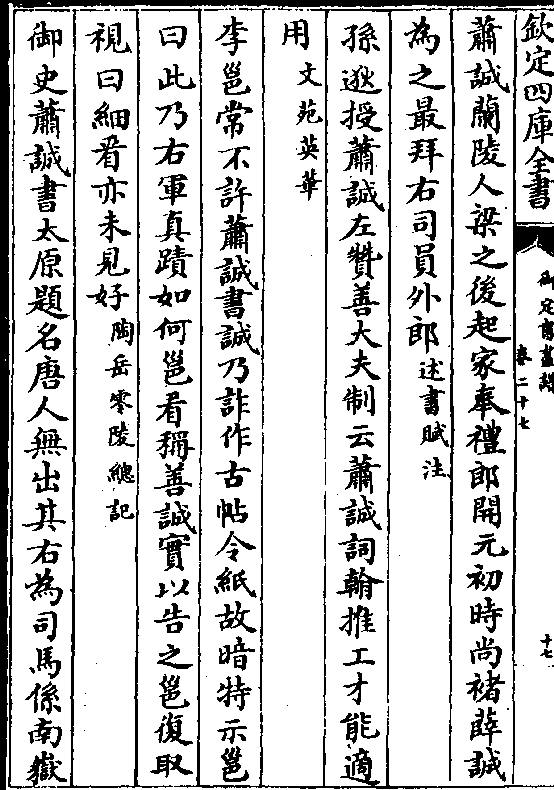 欽定四庫全書
御定書畫譜
卷二十七
十七
蕭誠蘭陵人梁之後起家奉禮郎開元初時尚褚薛誠
為之最拜右司員外郎述書賦注
孫逖授蕭誠左贊善大夫制云蕭誠詞翰推工才能適
用文苑英華
李邕常不許蕭誠書誠乃詐作古帖令紙故暗特示邕
曰此乃右軍真蹟如何邕看稱善誠實以告之邕復取
視曰細看亦未見好陶岳零陵總記
御史蕭誠書太原題名唐人無出其右為司馬係南嶽